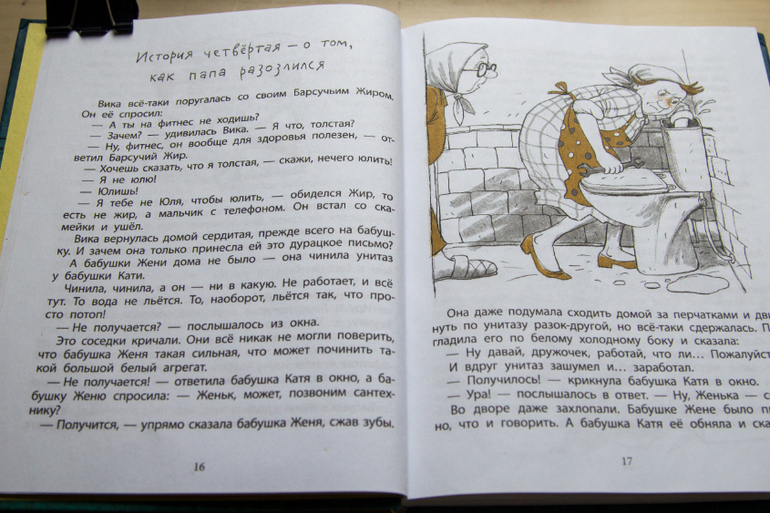 История четвёртая — о том,
как папа разозлился
Вика всё-таки поругалась со своим Барсучьим Жиром.
Он её спросил:
— А ты на фитнес не ходишь?
— Зачем? — удивилась Вика. — Я что, толстая?
— Ну, фитнес, он вообще для здоровья полезен, — от-
ветил Барсучий Жир.
— Хочешь сказать, что я толстая, — скажи, нечего юлить!
— Я не юлю!
— Юлишь!
— Я тебе не Юля, чтобы юлить, — обиделся Жир, то
есть не жир, а мальчик с телефоном. Он встал со ска-
мейки и ушёл.
Вика вернулась домой сердитая, прежде всего на бабуш-
ку. И зачем она только принесла ей это дурацкое письмо?
А бабушки Жени дома не было — она чинила унитаз
у бабушки Кати.
Чинила, чинила, а он — ни в какую. Не работает, и всё
тут. То вода не льётся. То, наоборот, льётся так, что про-
сто потоп!
— Не получается? — послышалось из окна.
Это соседки кричали. Они всё никак не могли поверить,
что бабушка Женя такая сильная, что может починить та-
кой большой белый агрегат.
— Не получается! — ответила бабушка Катя в окно, а ба-
бушку Женю спросила: — Женьк, может, позвоним сантех-
нику?
— Получится, — упрямо сказала бабушка Женя, сжав зубы.
16
Она даже подумала сходить домой за перчатками и дви
нуть по унитазу разок-другой, но всё-таки сдержалась. П
гладила его по белому холодному боку и сказала:
— Ну давай, дружочек, работай, что ли... Пожалуйст
И вдруг унитаз зашумел и... заработал.
— Получилось! — крикнула бабушка Катя в окно.
— Ура! — послышалось в ответ. — Ну, Женька — с
Во дворе даже захлопали. Бабушке Жене было п
но, что и говорить. А бабушка Катя её обняла и ска
17